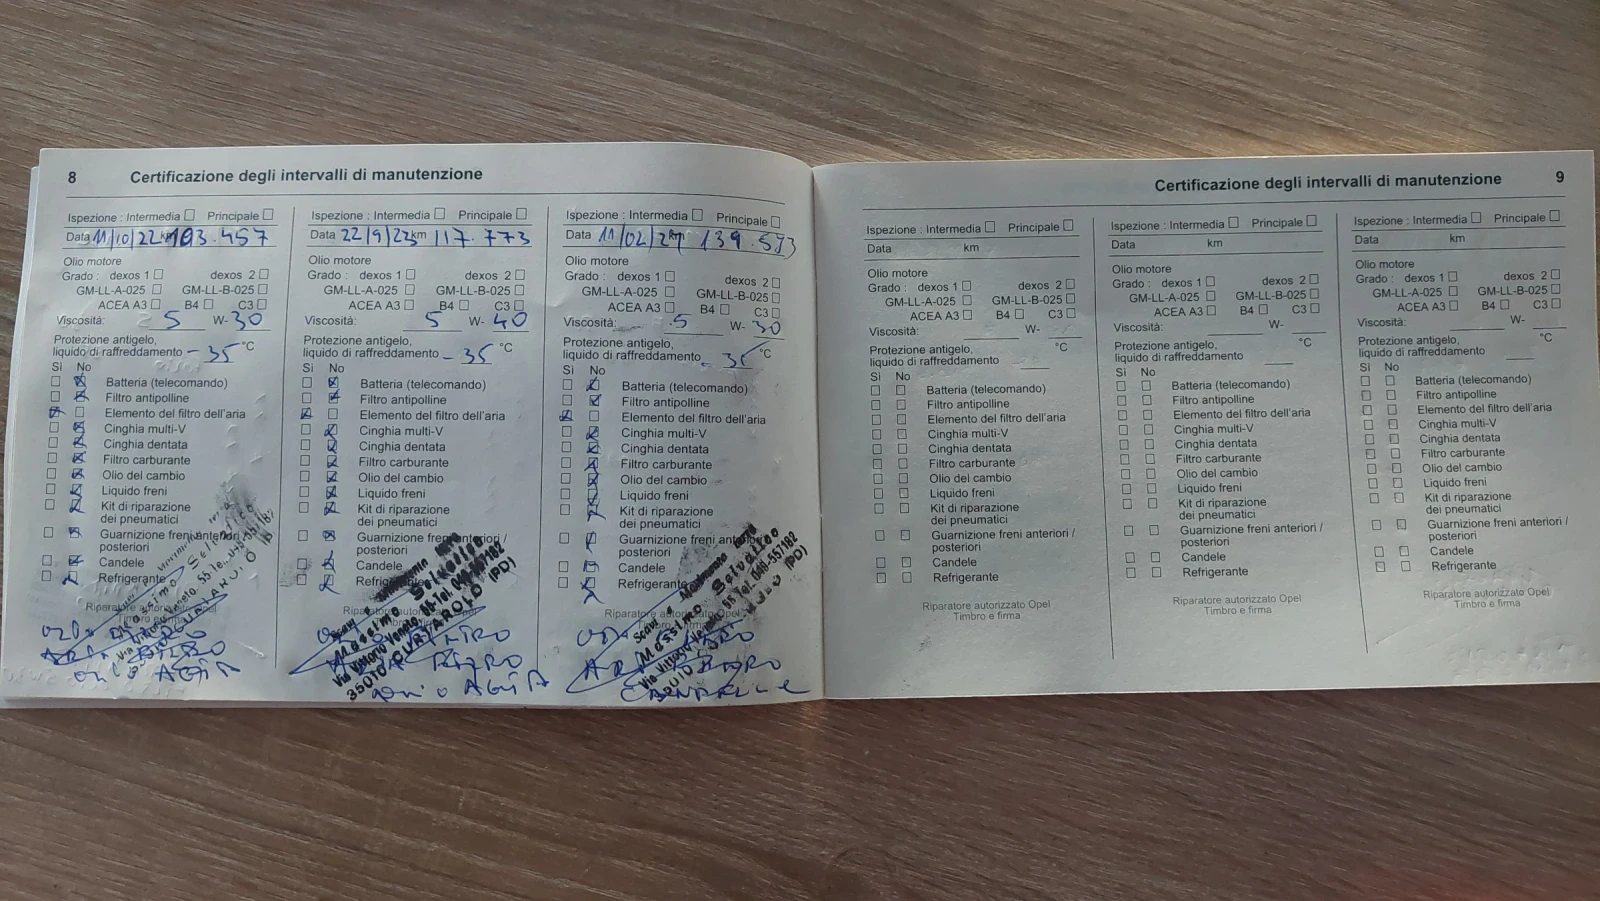 8 Certificazione degli intervalli di manutenzione
Ispezione : Intermedia Principale
Data 11/10/22 km 103.457
Olio motore
Grado : dexos 1 dexos 2
GM-LL-A-025 GM-LL-B-025
ACEA A3 B4 C3
Viscosità: 5 W- 30
Protezione antigelo,
liquido di raffreddamento -35 °C
Sì No
Batteria (telecomando)
Filtro antipolline
Elemento del filtro dell'aria
Cinghia multi-V
Cinghia dentata
Filtro carburante
Olio del cambio
Liquido freni
Kit di riparazione
dei pneumatici
Guarnizione freni anteriori
posteriori
Candele
Refrigerante
Riparatore autorizzato Opel
Ispezione : Intermedia Principale
Data 22/9/23 km 117.773
Olio motore
Grado : dexos 1 dexos 2
GM-LL-A-025 GM-LL-B-025
ACEA A3 B4 C3
Viscosità: 5 W- 40
Protezione antigelo,
liquido di raffreddamento -35 °C
Sì No
Batteria (telecomando)
Filtro antipolline
Elemento del filtro dell'aria
Cinghia multi-V
Cinghia dentata
Filtro carburante
Olio del cambio
Liquido freni
Kit di riparazione
dei pneumatici
Guarnizione freni anteriori /
posteriori
Candele
Massimo Selvatico
Via Vittorio Veneto, 55-Tel. 049-557182
35010 CURTAROLO (PD)
FILTRO
Ispezione : Intermedia Principale
Data 11/02/ km 139.573
Olio motore
Grado : dexos 1 dexos 2
GM-LL-A-025 GM-LL-B-025
ACEA A3 B4 C3
Viscosità: 5 W- 30
Protezione antigelo,
liquido di raffreddamento -35 °C
Sì No
Batteria (telecomando)
Filtro antipolline
Elemento del filtro dell'aria
Cinghia multi-V
Cinghia dentata
Filtro carburante
Olio del cambio
Liquido freni
Kit di riparazione
dei pneumatici
Guarnizione freni anteriori
posteriori
Candele
Refrigerante
Riparatore autorizzato Opel
Massimo Selvatico
CANDELE
Certificazione degli intervalli di manutenzione 9
Ispezione : Intermedia Principale
Data km
Olio motore
Grado : dexos 1 dexos 2
GM-LL-A-025 GM-LL-B-025
ACEA A3 B4 C3
Viscosità: W-
Protezione antigelo, °C
liquido di raffreddamento
Sì No
Batteria (telecomando)
Filtro antipolline
Elemento del filtro dell'aria
Cinghia multi-V
Cinghia dentata
Filtro carburante
Olio del cambio
Liquido freni
Kit di riparazione
dei pneumatici
Guarnizione freni anteriori /
posteriori
Candele
Refrigerante
Riparatore autorizzato Opel
Timbro e firma
Ispezione : Intermedia Principale
Data km
Olio motore
Grado : dexos 1 dexos 2
GM-LL-A-025 GM-LL-B-025
ACEA A3 B4 C3
Viscosità: W-
Protezione antigelo, °C
liquido di raffreddamento
Sì No
Batteria (telecomando)
Filtro antipolline
Elemento del filtro dell'aria
Cinghia multi-V
Cinghia dentata
Filtro carburante
Olio del cambio
Liquido freni
Kit di riparazione
dei pneumatici
Guarnizione freni anteriori /
posteriori
Candele
Refrigerante
Riparatore autorizzato Opel
Timbro e firma
Ispezione : Intermedia Principale
Data km
Olio motore
Grado : dexos 1 dexos 2
GM-LL-A-025 GM-LL-B-025
ACEA A3 B4 C3
Viscosità: W-
Protezione antigelo, °C
liquido di raffreddamento
Sì No
Batteria (telecomando)
Filtro antipolline
Elemento del filtro dell'aria
Cinghia multi-V
Cinghia dentata
Filtro carburante
Olio del cambio
Liquido freni
Kit di riparazione
dei pneumatici
Guarnizione freni anteriori /
posteriori
Candele
Refrigerante
Riparatore autorizzato Opel
Timbro e firma